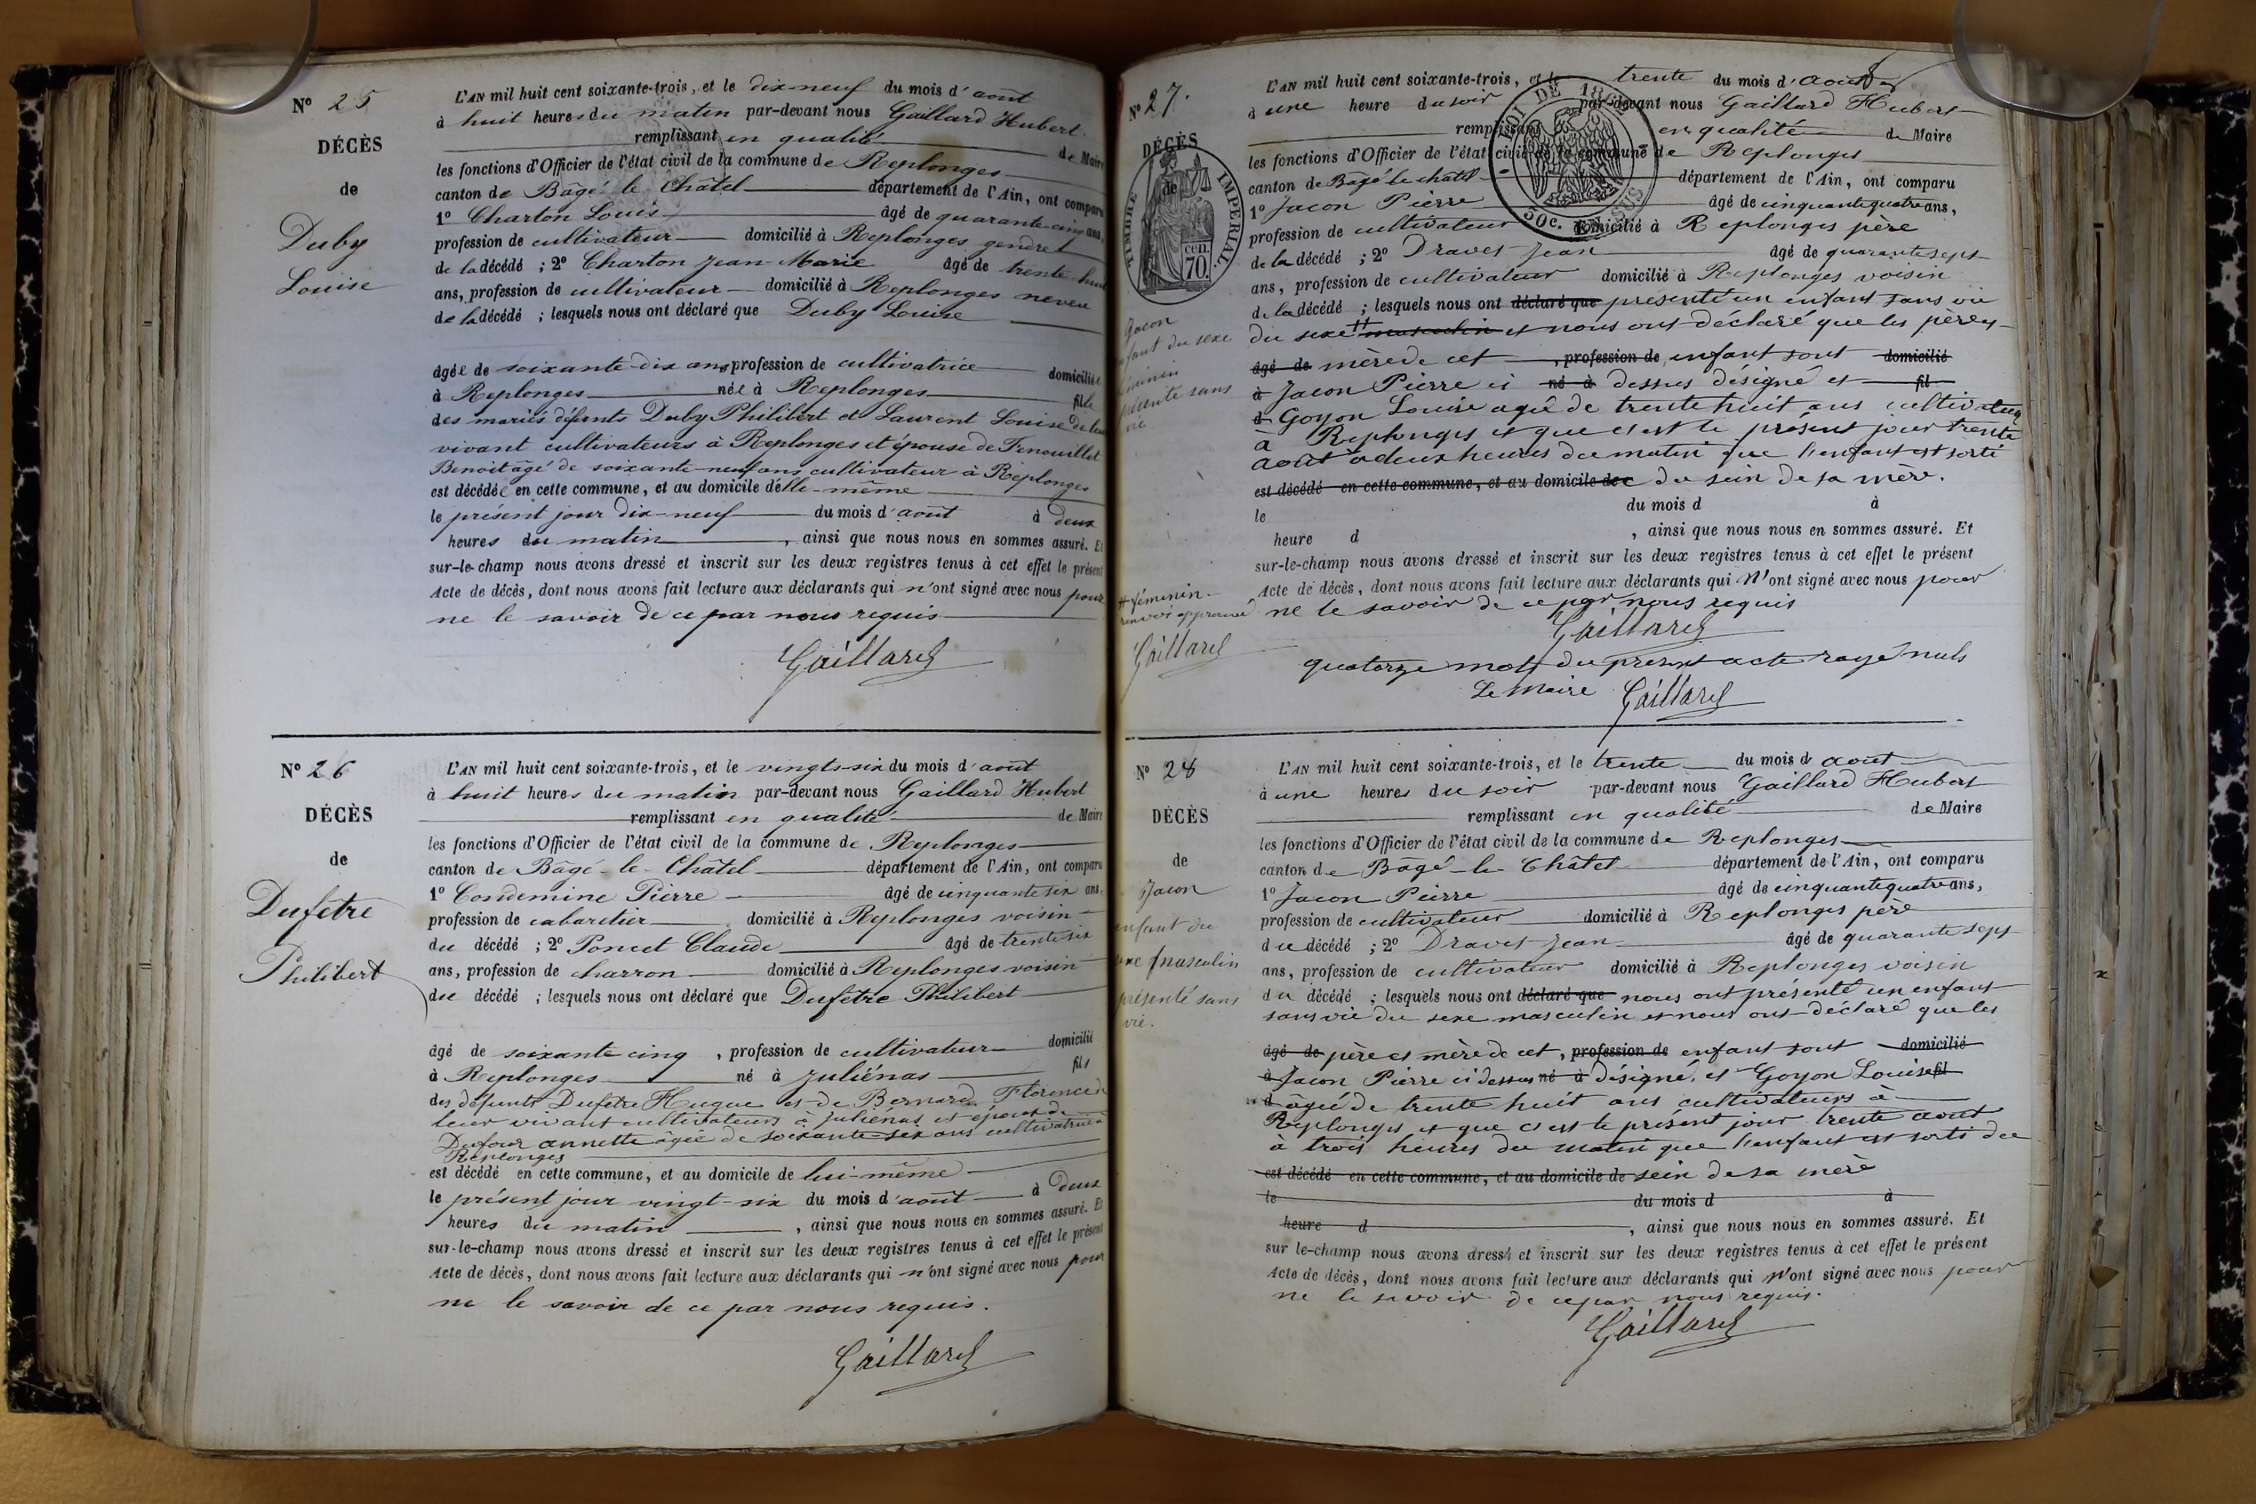 N° 25
DÉCÈS
de
Duby
Louise
L'AN mil huit cent soixante-trois, et le dix-neuf du mois d'août
à huit heures du matin par-devant nous Gaillard Hubert
remplissant en qualité de Maire
les fonctions d'Officier de l'état civil de la commune de Replonges
canton de Bâgé le Châtel département de l'Ain, ont comparu
1° Charton Louis âgé de quarante cinq ans,
profession de cultivateur domicilié à Replonges gendre
de la décédé ; 2° Charton Jean-Marie âgé de trente-huit
ans, profession de cultivateur domicilié à Replonges neveu
de la décédé ; lesquels nous ont déclaré que Duby Louise
âgée de soixante-dix ans profession de cultivatrice domiciliée
à Replonges née à Replonges fille
des mariés défunts Duby Philibert et Laurent Louise de leur
vivant cultivateurs à Replonges et épouse de Fenouillet
Benoit âgé de soixante-neuf ans cultivateur à Replonges
est décédée en cette commune, et au domicile d'elle-même
le présent jour dix-neuf du mois d'août à deux
heures du matin, ainsi que nous nous en sommes assuré. Et
sur-le-champ nous avons dressé et inscrit sur les deux registres tenus à cet effet le présent
Acte de décès, dont nous avons fait lecture aux déclarants qui n'ont signé avec nous pour
ne le savoir de ce par nous requis
Gaillard
N° 26
DÉCÈS
de
Dufêtre
Philibert
L'AN mil huit cent soixante-trois, et le vingt-six du mois d'août
à huit heures du matin par-devant nous Gaillard Hubert
remplissant en qualité de Maire
les fonctions d'Officier de l'état civil de la commune de Replonges
canton de Bâgé-le-Châtel département de l'Ain, ont comparu
1° Condemine Pierre âgé de cinquante six ans,
profession de cabaretier domicilié à Replonges voisin
du décédé ; 2° Poncet Claude âgé de trente six
ans, profession de charron domicilié à Replonges voisin
du décédé ; lesquels nous ont déclaré que Dufêtre Philibert
âgé de soixante cinq, profession de cultivateur domicilié
à Replonges né à Juliénas fils
des défunts Dufêtre Hugue et de Bernard Florence de
leur vivant cultivateurs à Juliénas et époux de
Dufour annette âgée de soixante-six ans cultivatrice à
Replonges
est décédé en cette commune, et au domicile de lui-même
le présent jour vingt-six du mois d'août à deux
heures du matin, ainsi que nous nous en sommes assuré. Et
sur-le-champ nous avons dressé et inscrit sur les deux registres tenus à cet effet le présent
Acte de décès, dont nous avons fait lecture aux déclarants qui n'ont signé avec nous pour
ne le savoir de ce par nous requis.
Gaillard
N° 27.
DÉCÈS
de
TIMBRE IMPERIAL
70 cen.
LOI DE 1862
50c. EN SUS
Jacon
enfant du sexe
féminin
présenté sans
vie
L'AN mil huit cent soixante-trois, et le trente du mois d'août
à une heure du soir par-devant nous Gaillard Hubert
remplissant en qualité de Maire
les fonctions d'Officier de l'état civil de la commune de Replonges
canton de Bâgé le châtel département de l'Ain, ont comparu
1° Jacon Pierre âgé de cinquante quatre ans,
profession de cultivateur domicilié à Replonges père
de la décédé ; 2° Dravet Jean âgé de quarante sept
ans, profession de cultivateur domicilié à Replonges voisin
de la décédé ; lesquels nous ont déclaré que présenté un enfant sans vie
du sexe # masculin et nous ont déclaré que les père et
âgé de mère de cet, profession de enfant sont domicilié
à Jacon Pierre ci né à dessus désigné et fil
d Goyon Louise agée de trente huit ans cultivateurs
à Replonges et que c'est le présent jour trente
août à deux heures du matin que l'enfant est sorti
est décédé en cette commune, et au domicile de du sein de sa mère.
le du mois d à
heure d , ainsi que nous nous en sommes assuré. Et
sur-le-champ nous avons dressé et inscrit sur les deux registres tenus à cet effet le présent
Acte de décès, dont nous avons fait lecture aux déclarants qui n'ont signé avec nous pour
ne le savoir de ce par nous requis
# féminin
renvoi approuvé
Gaillard
Gaillard
quatorze mots du present acte rayé nuls
Le Maire Gaillard
N° 28
DÉCÈS
de
Jacon
enfant du
sexe masculin
présenté sans
vie.
L'AN mil huit cent soixante-trois, et le trente du mois d août
à une heures du soir par-devant nous Gaillard Hubert
remplissant en qualité de Maire
les fonctions d'Officier de l'état civil de la commune de Replonges
canton de Bâgé-le-Châtel département de l'Ain, ont comparu
1° Jacon Pierre âgé de cinquante quatre ans,
profession de cultivateur domicilié à Replonges père
du décédé ; 2° Dravet Jean âgé de quarante sept
ans, profession de cultivateur domicilié à Replonges voisin
du décédé ; lesquels nous ont déclaré que nous ont présenté un enfant
sans vie du sexe masculin et nous ont déclaré que les
âgé de père et mère de cet, profession de enfant sont domicilié
à Jacon Pierre ci dessus né à désigné, et Goyon Louise fil
d âgée de trente huit ans cultivateurs à
Replonges et que c'est le présent jour trente août
à trois heures du matin que l'enfant est sorti du
est décédé en cette commune, et au domicile de sein de sa mère
le du mois d à
heure d , ainsi que nous nous en sommes assuré. Et
sur le-champ nous avons dressé et inscrit sur les deux registres tenus à cet effet le présent
Acte de décès, dont nous avons fait lecture aux déclarants qui n'ont signé avec nous pour
ne le savoir de ce par nous requis.
Gaillard